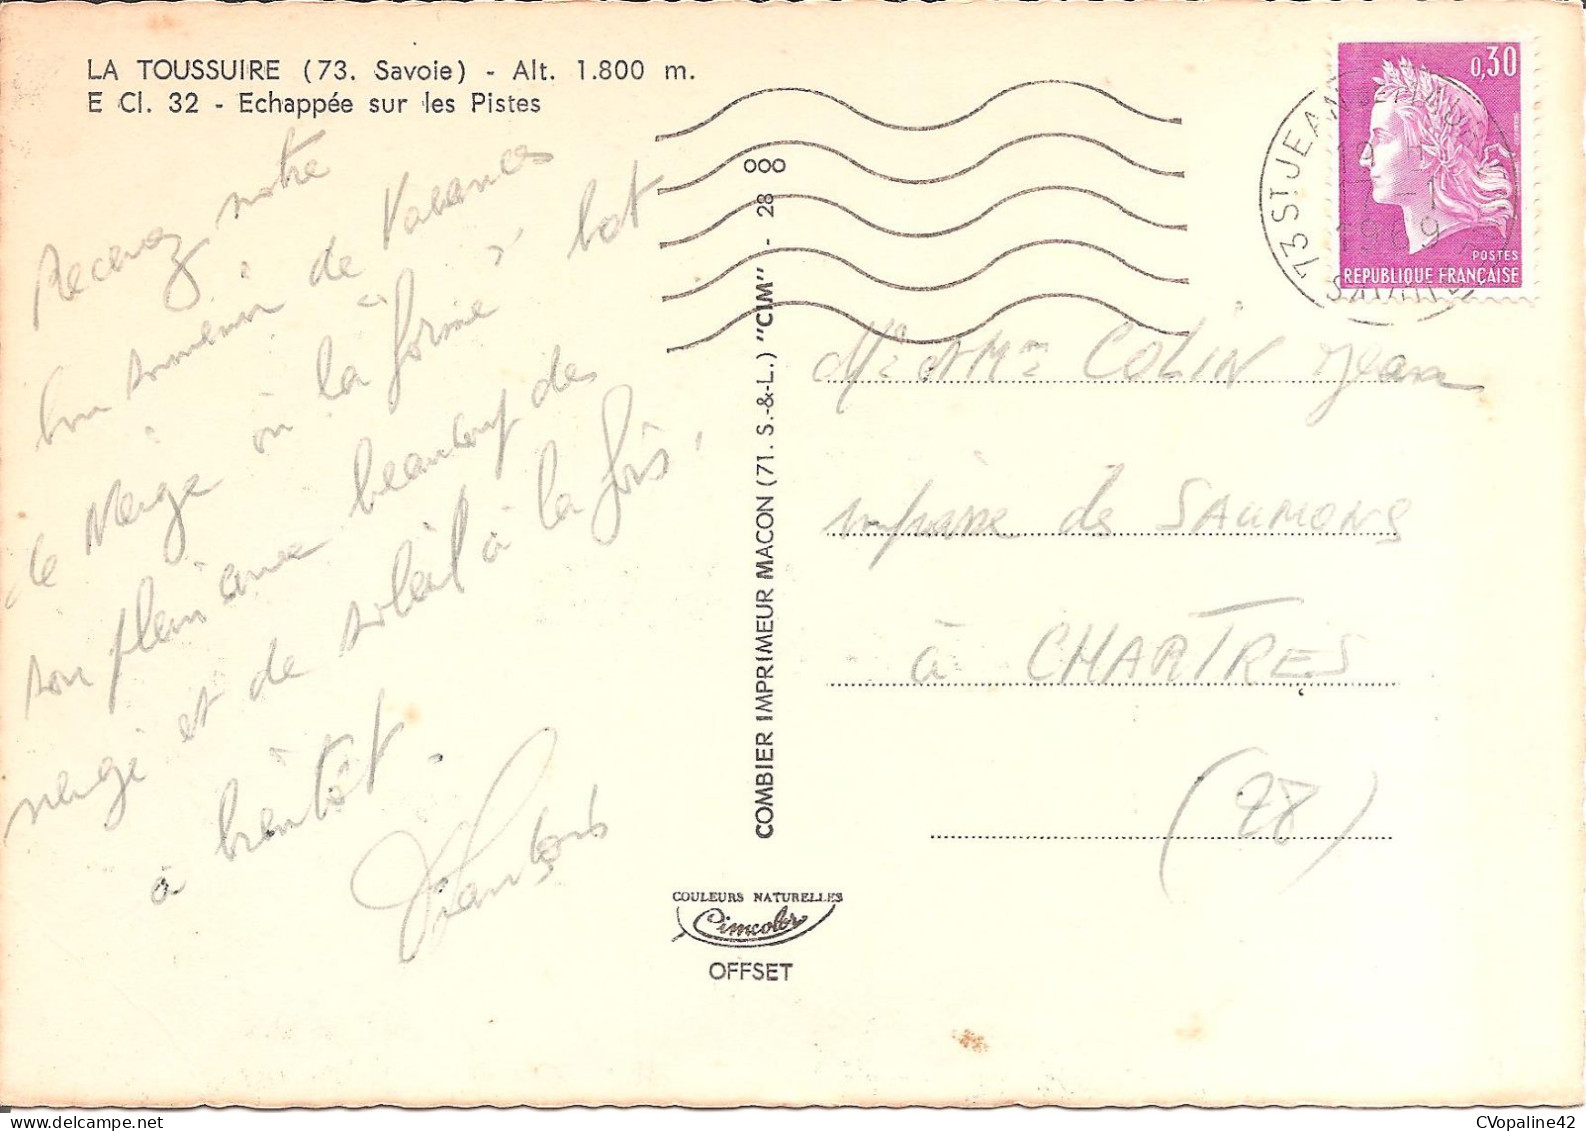 LA TOUSSUIRE (73. Savoie) - Alt. 1.800 m.
E Cl. 32 - Echappée sur les Pistes
Recevez notre
bon souvenir de Vacances
de Neige où "la forme" bat
son plein avec beaucoup de
neige et de soleil à la fois,
à bientôt.
COMBIER IMPRIMEUR MACON (71. S.-&-L.) "CIM" - 28 000
COULEURS NATURELLES
Cimcolor
OFFSET
0,30
POSTES
REPUBLIQUE FRANÇAISE
73 ST JEAN
17 - 1
1969
SAVOIE
Mr & Mme COLIN Jean
impasse de SAUMONS
à CHARTRES
(28)
CVopaline42